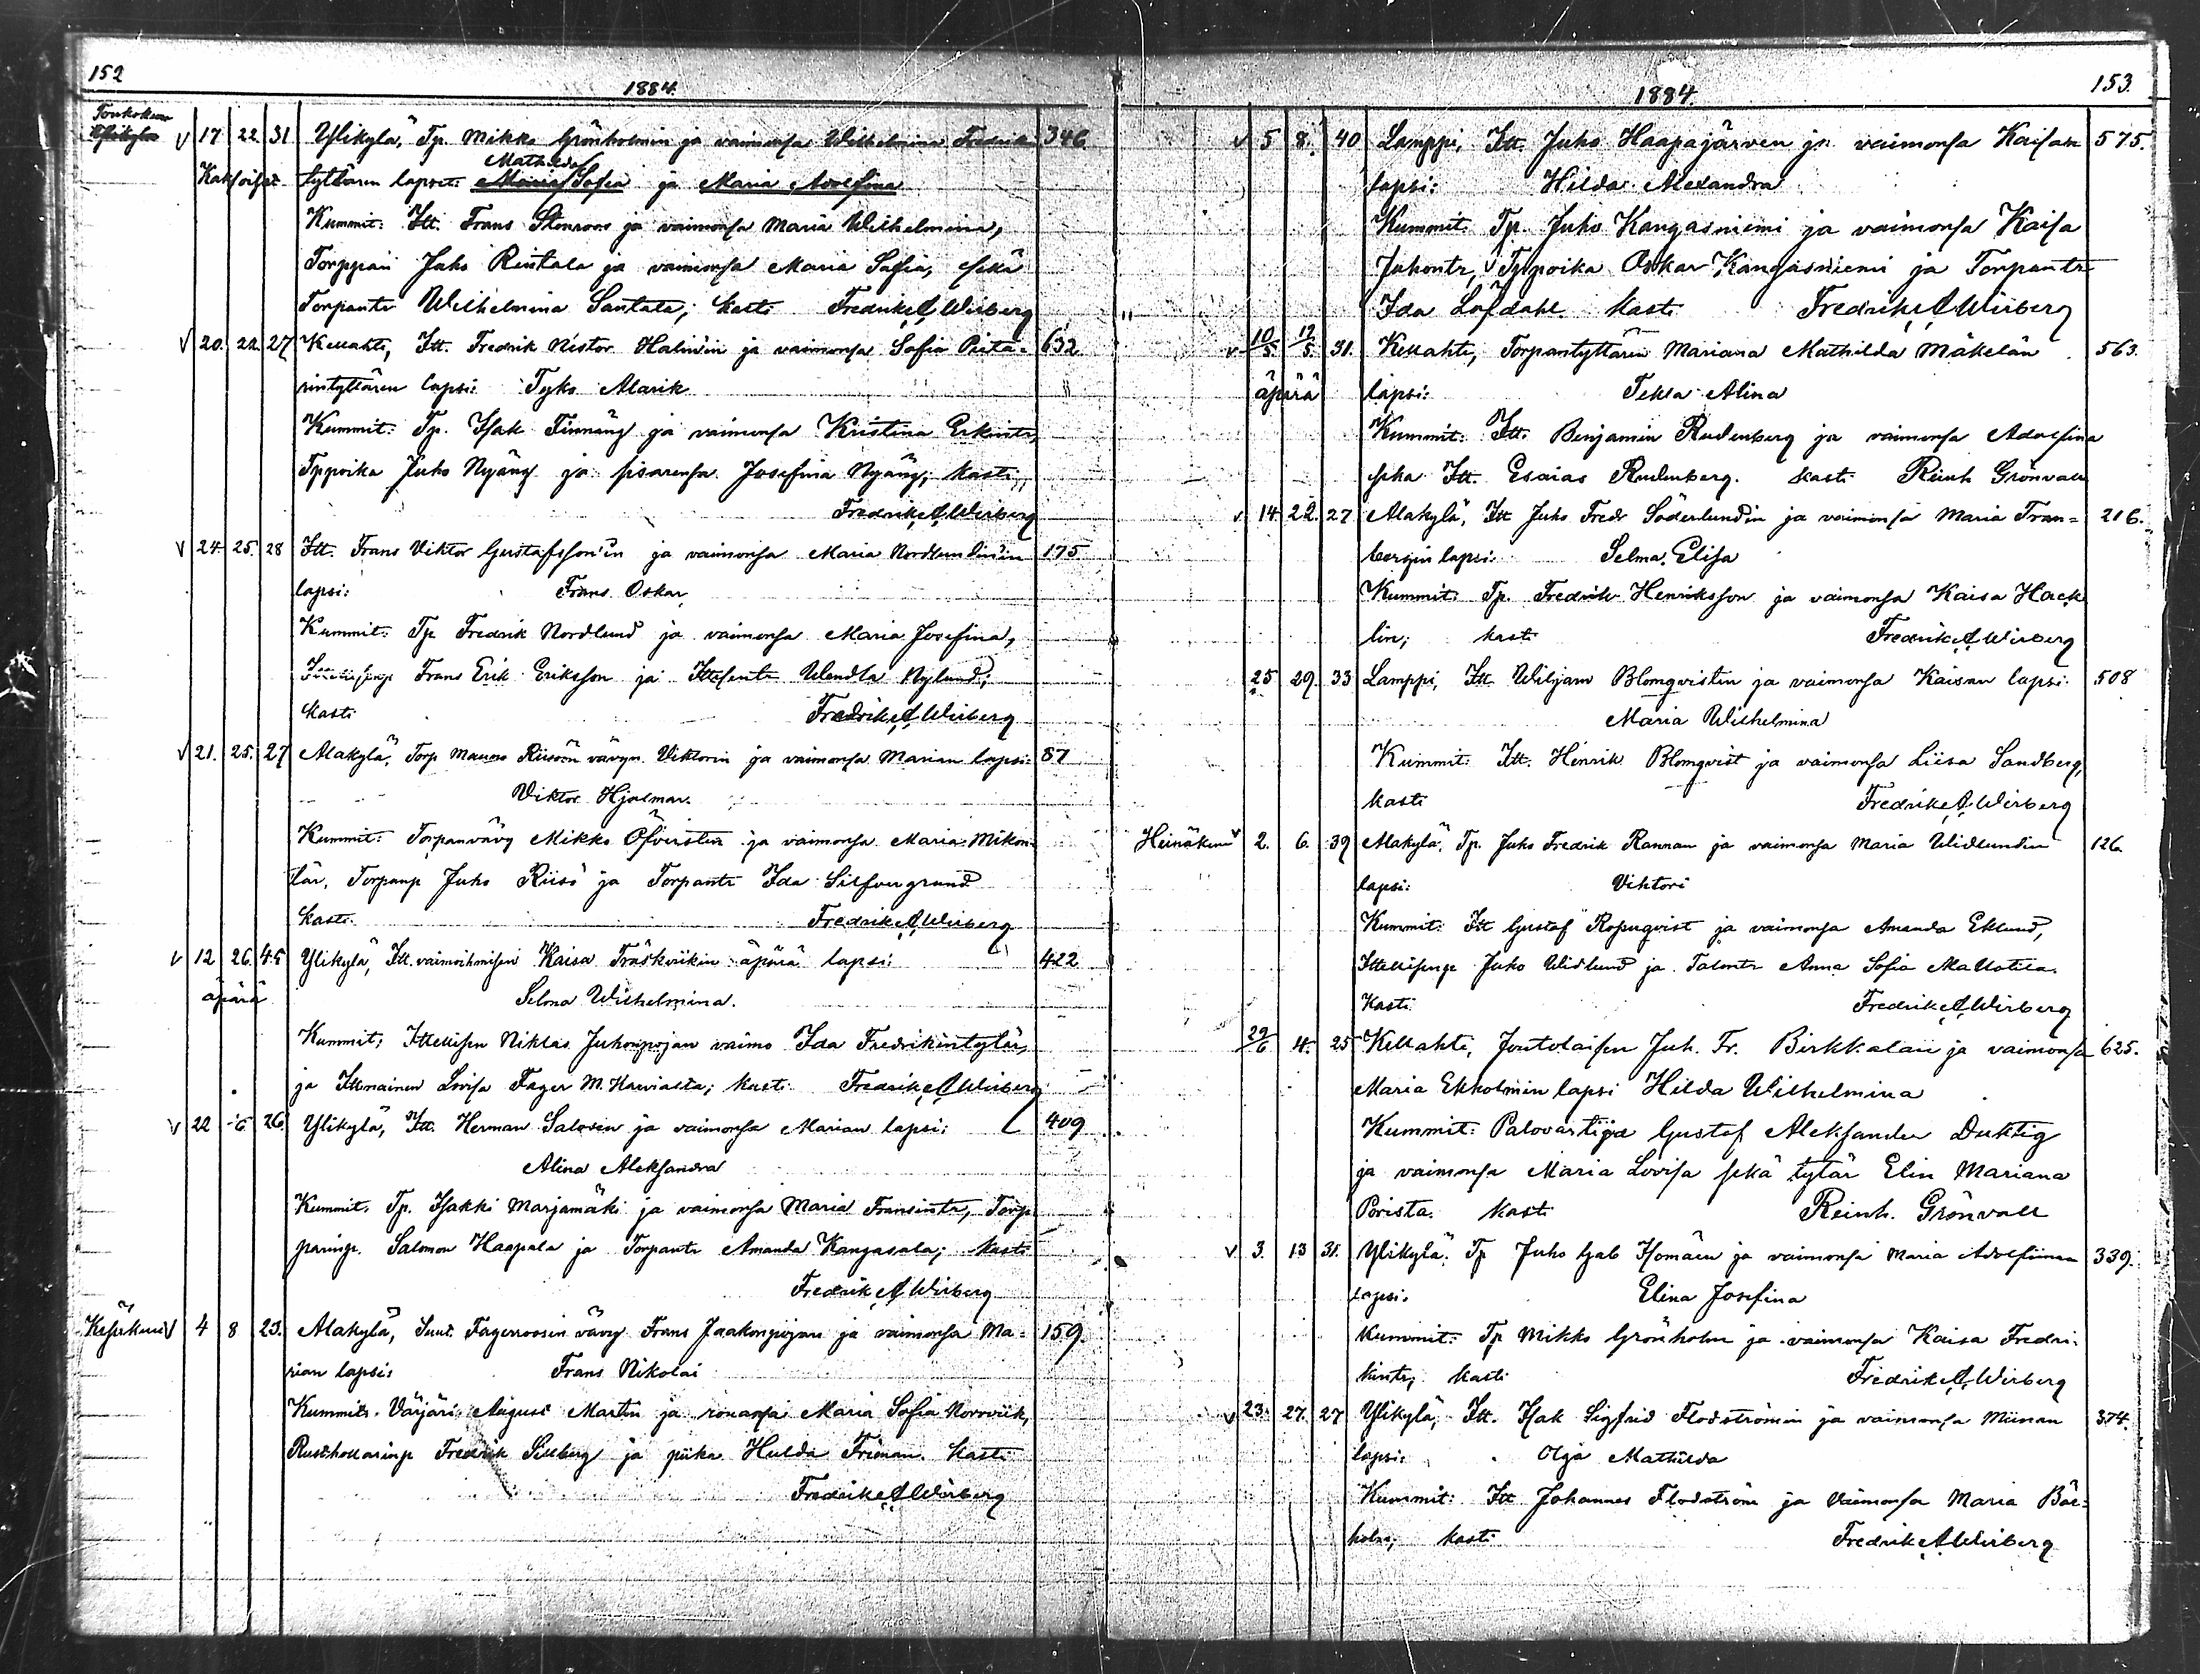 152
1884.
Toukokuu
Ylikylä
v 17 22 31 Ylikylä, Tp. Mikko Grönholmin ja vaimonsa Wilhelmina Fredrik- 346
Mathilda
Kaksoiset tyttären lapset: Maria Sofia ja Maria Adolfina
Kummit: Itt. Frans Stenroos ja vaimonsa Maria Wilhelmina,
Torppari Juho Rintala ja vaimonsa Maria Sofia, sekä
Torpantr Wilhelmina Santala; kasti Fredrik A Wirberg
v 20. 22. 27 Kellahti, Itt. Fredrik Nestor Halinin ja vaimonsa Sofia Pietä- 632
rintyttären lapsi: Tyko Alarik
Kummit: Tp. Isak Finnäng ja vaimonsa Kristina Erkintr,
Tppoika Juho Nyäng ja sisarensa Josefina Nyäng; kasti,
Fredrik A Wirberg
v 24. 25. 28 Itt. Frans Viktor Gustafsson'in ja vaimonsa Maria Nordlundin'in 175
lapsi: Frans Oskar
Kummit: Tp Fredrik Nordlund ja vaimonsa Maria Josefina,
Frans Erik Eriksson ja Ittesentr Wendla Nylund;
kasti Fredrik A Wirberg
v 21. 25. 27 Alakylä, Torp Mauno Riisön vävyn Viktorin ja vaimonsa Marian lapsi: 87
Viktor Hjalmar.
Kummit: Torpanvävy Mikko Öfversten ja vaimonsa Maria Mikon-
tär, Torpanp Juho Riisö ja Torpantr Ida Silfvergrund
kasti. Fredrik A Wirberg
v 12 26. 45 Ylikylä, Itt. vaimoihmisen Kaisa Träskvikin äpärä lapsi: 422
äpärä Selma Wilhelmina.
Kummit; Ittellisen Niklas Juhonpojan vaimo Ida Fredrikintytär,
ja Ittnainen Lovisa Fager M. Harvialta; kasti Fredrik A Wirberg
v 22 26. Ylikylä, Itt. Herman Salosen ja vaimonsa Marian lapsi: 409
Alina Aleksandra
Kummit. Tp. Isakki Marjamäki ja vaimonsa Maria Fransintr, Torp-
parinp. Salomon Haapala ja Torpantr Amanda Kangasala; kasti
Fredrik A Wirberg
Kesäkuu v 4 8 23. Alakylä, Suut. Fagerroosin vävy Frans Jaakonpojan ja vaimonsa Ma- 159.
rian lapsi: Frans Nikolai
Kummit. Värjäri August Martin ja rouansa Maria Sofia Norrvik,
Rusthollarinp Fredrik Sillberg ja piika Hulda Friman. kasti
Fredrik A Wirberg
153.
1884.
v 5 8. 40 Lamppi, Itt. Juho Haapajärven ja vaimonsa Kaisan 575.
lapsi: Hilda Alexandra
Kummit. Tp. Juho Kangasniemi ja vaimonsa Kaisa
Juhontr, Tppoika Oskar Kangasniemi ja Torpantr
Ida Löfdahl. kasti Fredrik A Wirberg
v 10/5 12/5 31. Kellahti, Torpantyttären Mariana Mathilda Mäkelän 563.
äpärä lapsi: Tekla Alina
Kummit: Itt. Benjamin Rudenberg ja vaimonsa Adolfina
sekä Itt. Esaias Rudenberg. kasti Reinh Grönvall
v 14. 22. 27 Alakylä, Itt Juho Fredr Söderlundin ja vaimonsa Maria Tran- 216.
bergin lapsi: Selma Elisa
Kummit: Tp. Fredrik Henriksson ja vaimonsa Kaisa Hack-
lin; kasti Fredrik A Wirberg
25 29. 33 Lamppi, Itt. Wiljam Blomqvistin ja vaimonsa Kaisan lapsi: 508
Maria Wilhelmina
Kummit: Itt. Henrik Blomqvist ja vaimonsa Liisa Sandberg,
kasti Fredrik A Wirberg
Heinäkuu v 2. 6. 39 Alakylä, Tp. Juho Fredrik Rannan ja vaimonsa Maria Widlundin 126.
lapsi: Viktori
Kummit: Itt Gustaf Rosuqvist ja vaimonsa Amanda Eklund,
Ittellisenp Juho Widlund ja Talontr Anna Sofia Mallatila.
kasti Fredrik A Wirberg
29/6 4. 25 Kellahti, Joutolaisen Juh. Fr. Birkkalan ja vaimonsa 625.
Maria Ekholmin lapsi Hilda Wilhelmina
Kummit: Palovartija Gustaf Aleksander Duktig
ja vaimonsa Maria Lovisa sekä tytär Elin Mariana
Porista. kasti Reinh. Grönvall
v 3. 13 31. Ylikylä, Tp Juho Gab Isomäen ja vaimonsa Maria Adolfiinan 339.
lapsi. Elina Josefina
Kummit: Tp Mikko Grönholm ja vaimonsa Kaisa Fredri-
kintr, kasti Fredrik A Wirberg
v 23. 27. 27 Ylikylä, Itt. Isak Sigfrid Flodströmin ja vaimonsa Miinan 374.
lapsi: Olga Mathilda
Kummit: Itt Johannes Flodström ja Vaimonsa Maria Bäc-
holm; kasti Fredrik A Wirberg